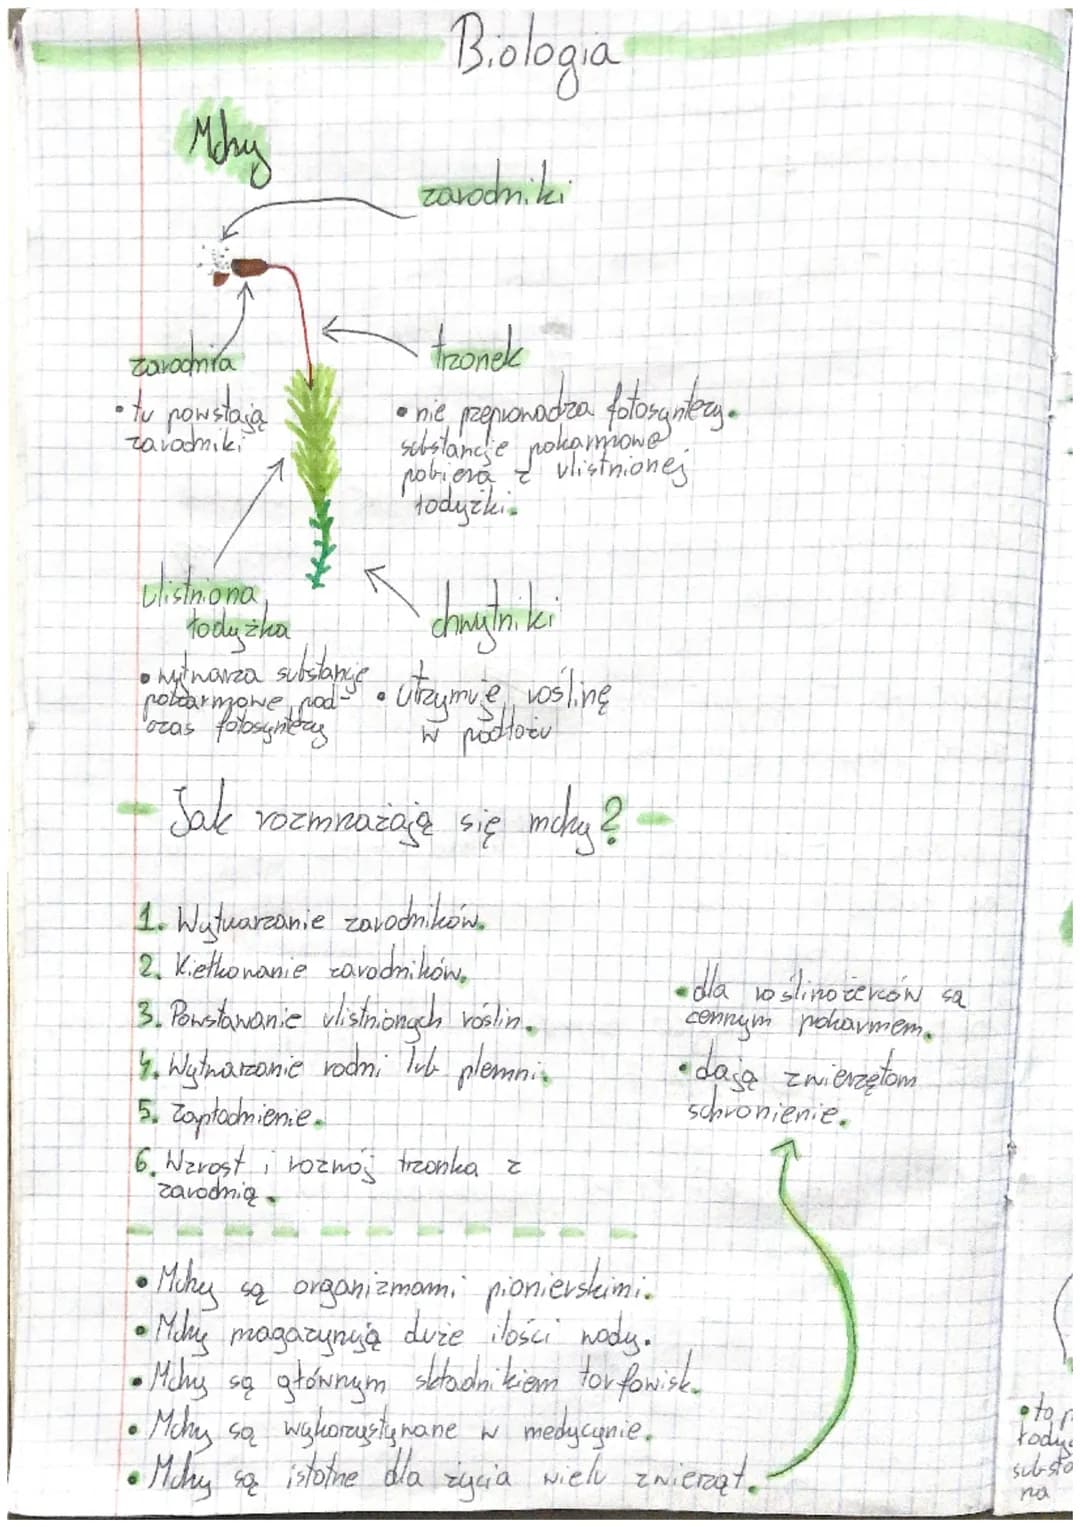 Biologia
Mchy
zarodniki
zarodnia
• tu powstają
zarodniki
trzonek
• nie przeprowadza fotosyntezy.
substancje pokarmowe
pobiera z ulistnionej
łodyżki.
ulistniona
łodyżka
• wytwarza substancje
pokarmowe pod-
czas fotosyntezy
chwytniki
• utrzymuje roślinę
w podłożu
- Jak rozmnażają się mchy? -
1. Wytwarzanie zarodników.
2. Kiełkowanie zarodników.
3. Powstawanie ulistnionych roślin.
4. Wytwarzanie rodni lub plemni.
5. Zapłodnienie.
6. Wzrost i rozwój trzonka z
zarodnią.
• Mchy są organizmami pionierskimi.
• Mchy magazynują duże ilości wody.
• Mchy są głównym składnikiem torfowisk.
• Mchy są wykorzystywane w medycynie.
• Mchy są istotne dla życia wielu zwierząt.
• dla roślinożerców są
cennym pokarmem.
• dają zwierzętom
schronienie.
• to
na